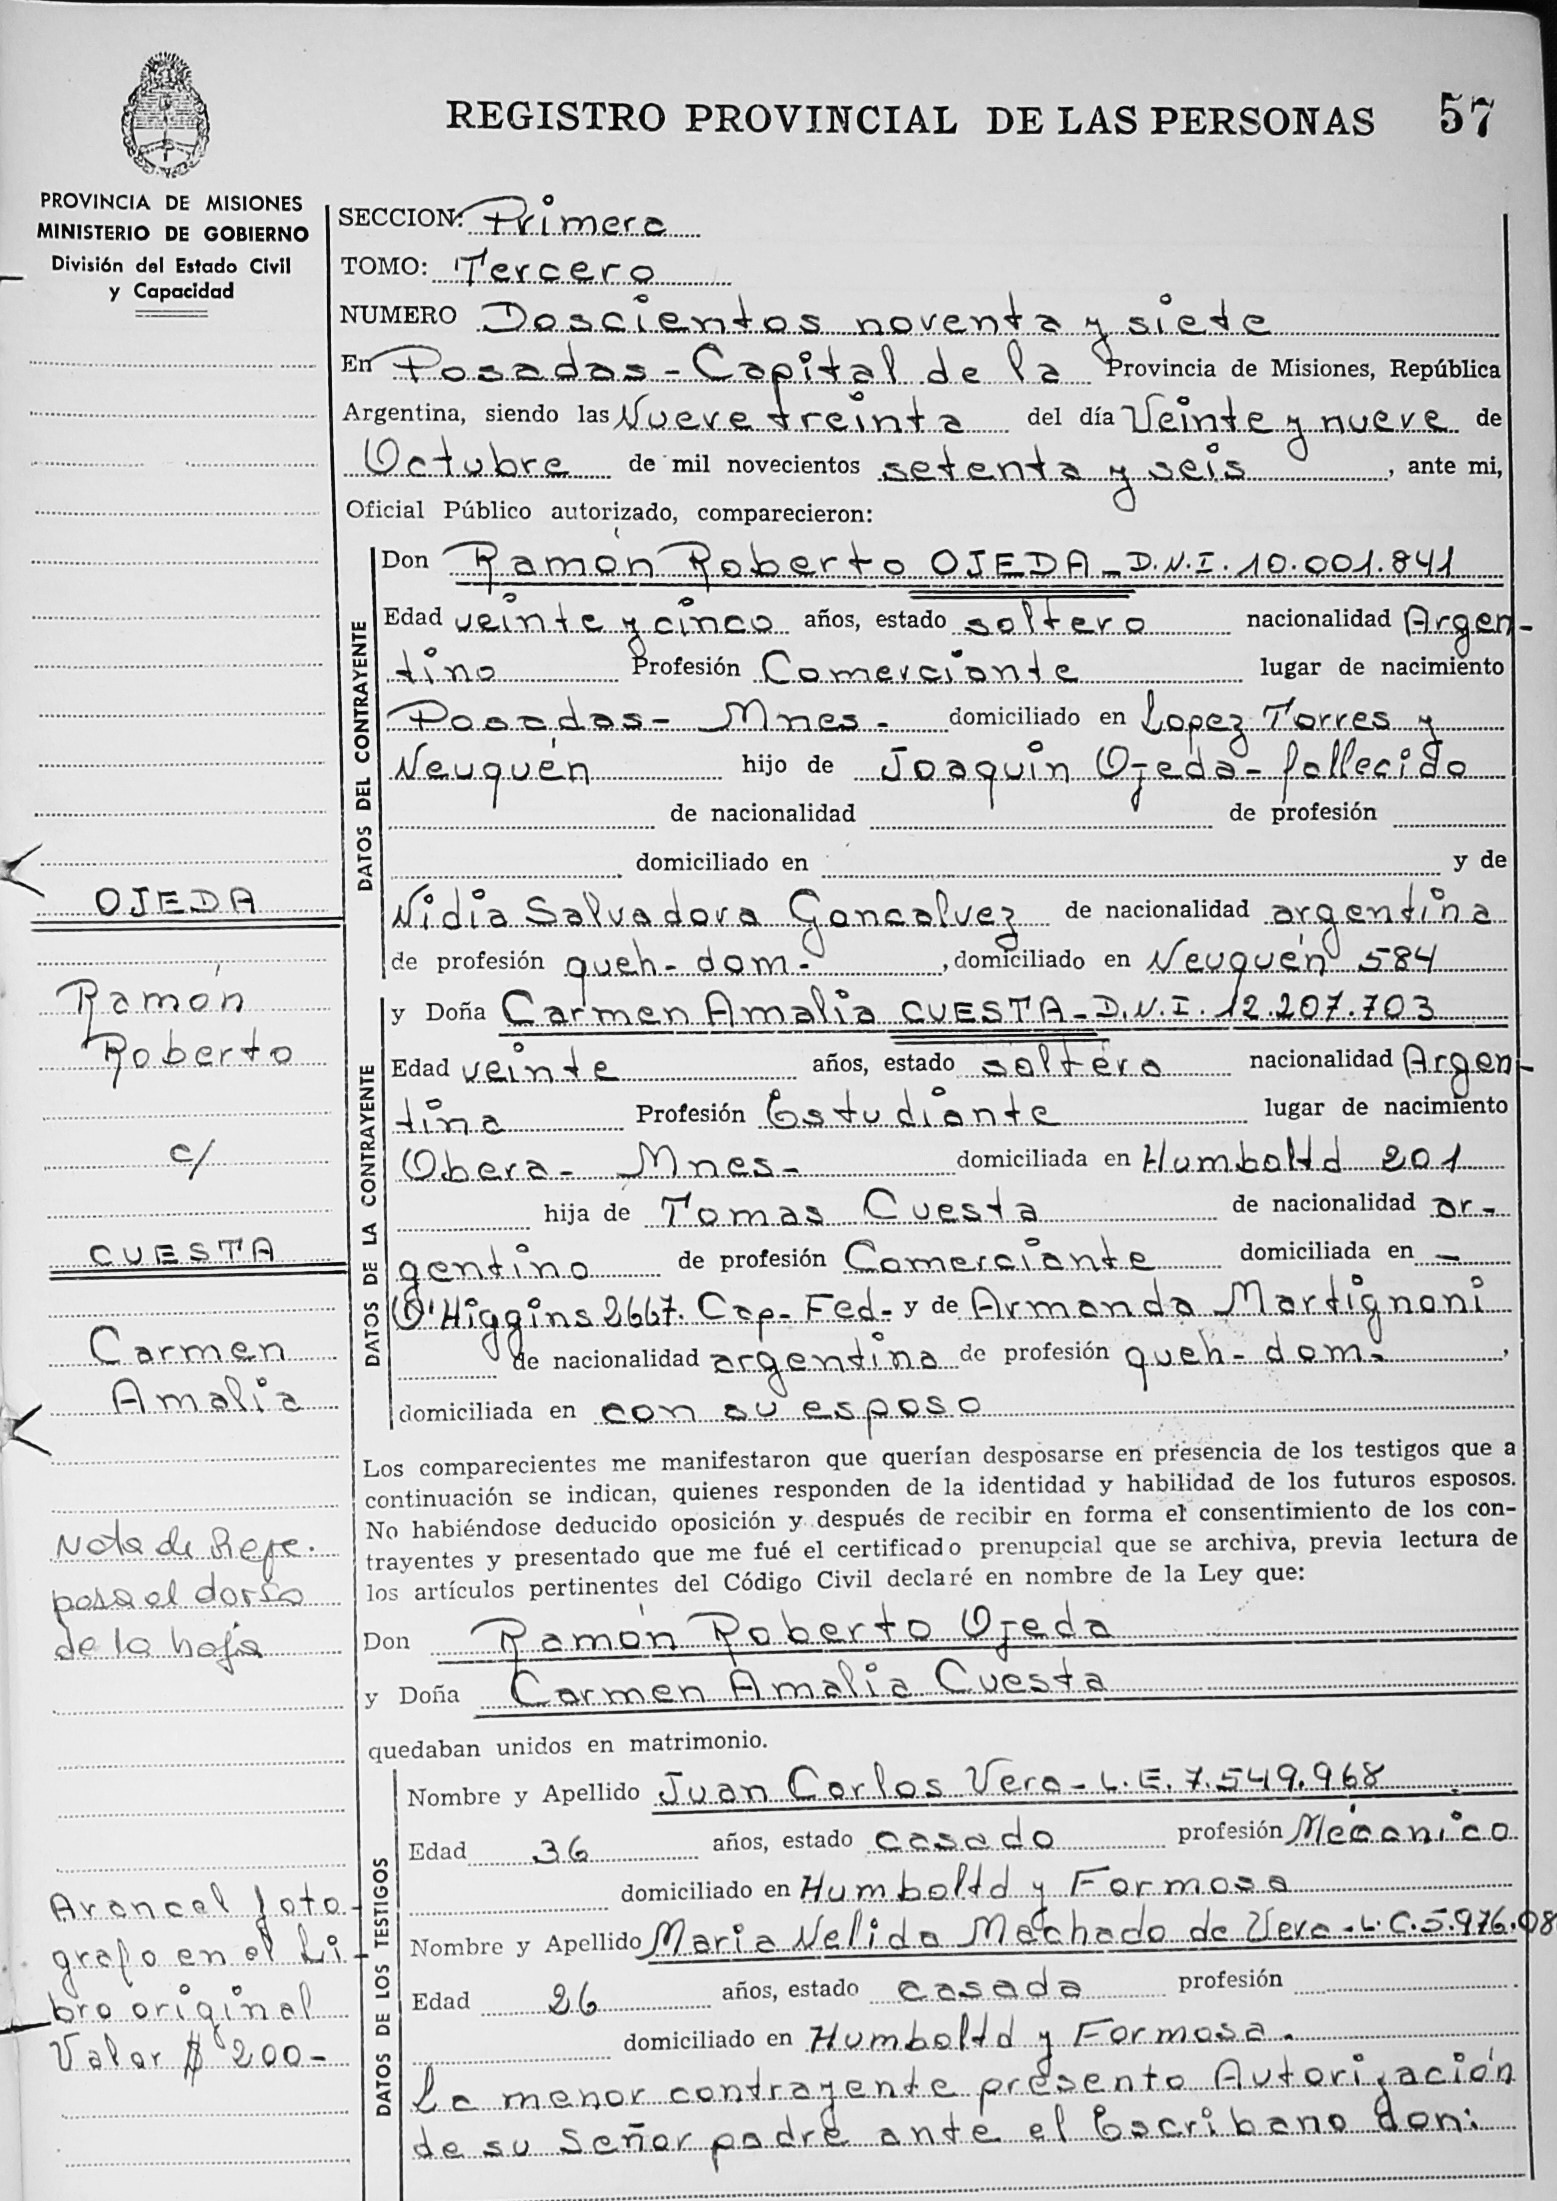 REGISTRO PROVINCIAL DE LAS PERSONAS 57
PROVINCIA DE MISIONES
MINISTERIO DE GOBIERNO
División del Estado Civil
y Capacidad
SECCION: Primera
TOMO: Tercero
NUMERO Doscientos noventa y siete
En Posadas - Capital de la Provincia de Misiones, República
Argentina, siendo las Nueve treinta del día Veinte y nueve de
Octubre de mil novecientos setenta y seis, ante mi,
Oficial Público autorizado, comparecieron:
DATOS DEL CONTRAYENTE
Don Ramón Roberto OJEDA - D.N.I. 10.001.841
Edad veinte y cinco años, estado soltero nacionalidad Argen-
tino Profesión Comerciante lugar de nacimiento
Posadas - Mnes - domiciliado en Lopez Torres y
Neuquén hijo de Joaquin Ojeda - fallecido
de nacionalidad de profesión
domiciliado en y de
Nidia Salvadora Goncalvez de nacionalidad argentina
de profesión queh - dom -, domiciliado en Neuquén 584
DATOS DE LA CONTRAYENTE
y Doña Carmen Amalia CUESTA - D.N.I. 12.207.703
Edad veinte años, estado soltera nacionalidad Argen-
tina Profesión Estudiante lugar de nacimiento
Obera - Mnes - domiciliada en Humboltd 201
hija de Tomas Cuesta de nacionalidad ar-
gentino de profesión Comerciante domiciliada en -
O'Higgins 2667. Cap - Fed - y de Armanda Martignoni
de nacionalidad argentina de profesión queh - dom -,
domiciliada en con su esposo
Los comparecientes me manifestaron que querían desposarse en presencia de los testigos que a
continuación se indican, quienes responden de la identidad y habilidad de los futuros esposos.
No habiéndose deducido oposición y después de recibir en forma el consentimiento de los con-
trayentes y presentado que me fué el certificado prenupcial que se archiva, previa lectura de
los artículos pertinentes del Código Civil declaré en nombre de la Ley que:
Don Ramón Roberto Ojeda
y Doña Carmen Amalia Cuesta
quedaban unidos en matrimonio.
DATOS DE LOS TESTIGOS
Nombre y Apellido Juan Carlos Vera - L.E. 7.549.968
Edad 36 años, estado casado profesión Mécanico
domiciliado en Humboltd y Formosa
Nombre y Apellido Maria Nelida Machado de Vera - L.C. 5.976.08
Edad 26 años, estado casada profesión
domiciliado en Humboltd y Formosa.
La menor contrayente presento Autorización
de su Señor padre ante el Escribano don:
OJEDA
Ramón
Roberto
c/
CUESTA
Carmen
Amalia
Nota de Refe.
pasa al dorso
de la hoja
Arancel foto-
grafo en el Li-
bro original
Valor $ 200-